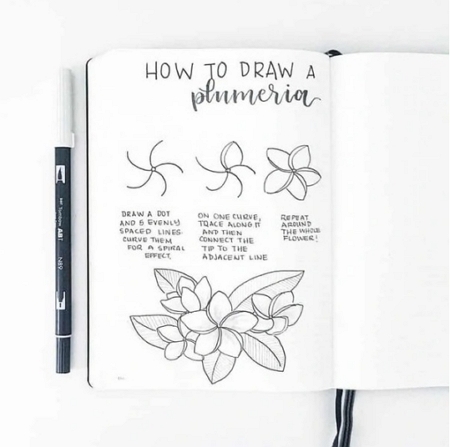 HOW TO DRAW A
plumeria
DRAW A DOT
AND 5 EVENLY
SPACED LINES.
CURVE THEM
FOR A SPIRAL
EFFECT.
ON ONE CURVE,
TRACE ALONG IT
AND THEN
CONNECT THE
TIP TO THE
ADJACENT LINE
REPEAT
AROUND
THE WHOLE
FLOWER!
Tombow ABT
N89